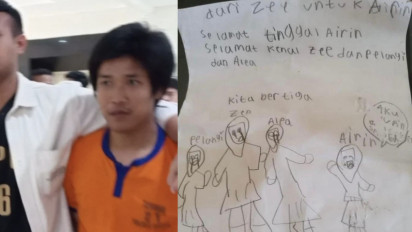 dari Zee untuk Airin
Selamat tinggal Airin
Selamat kenal Zee dan pelangi
dan Alea
kita bertiga
Zee
pelangi
Alea
Airin
Aku
6